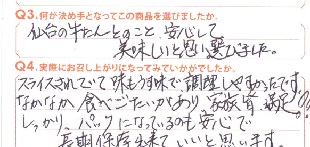 Q3.何が決め手となってこの商品を選びましたか。
仙台の牛たんとのこと、安心して
美味しいと思い選びました。
Q4.実際にお召し上がりになってみていかがでしたか。
スライスされていて味もうす味で調理しやすかったです。
なかなか食べごたいがあり家族皆満足。
しっかりパックになっているのも安心で
長期保存出来ていいと思います。